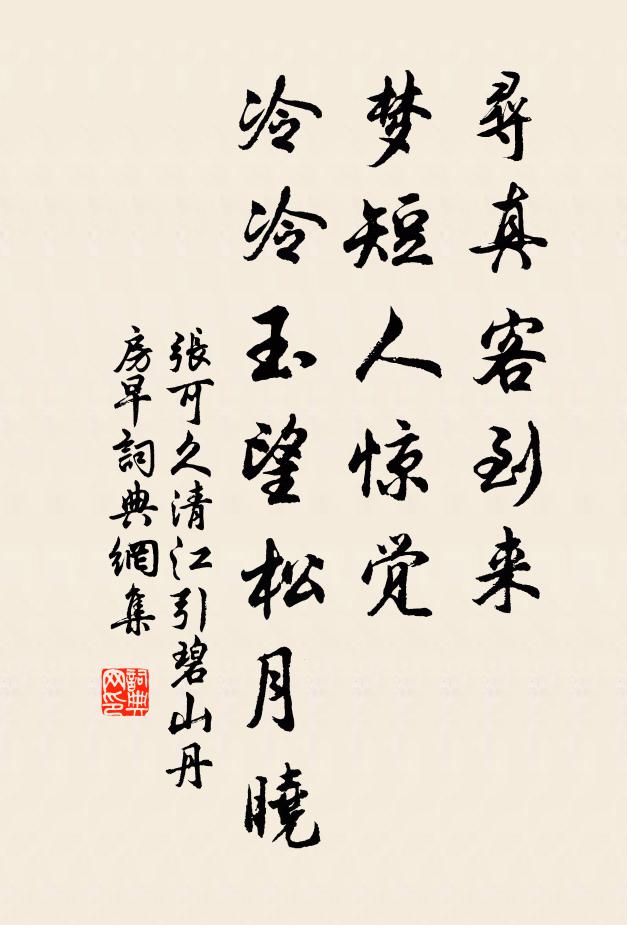 尋真客到来
梦短人惊觉
冷冷玉望松月曉
張可久清江引碧山丹
房早詞典網集
詞典网印